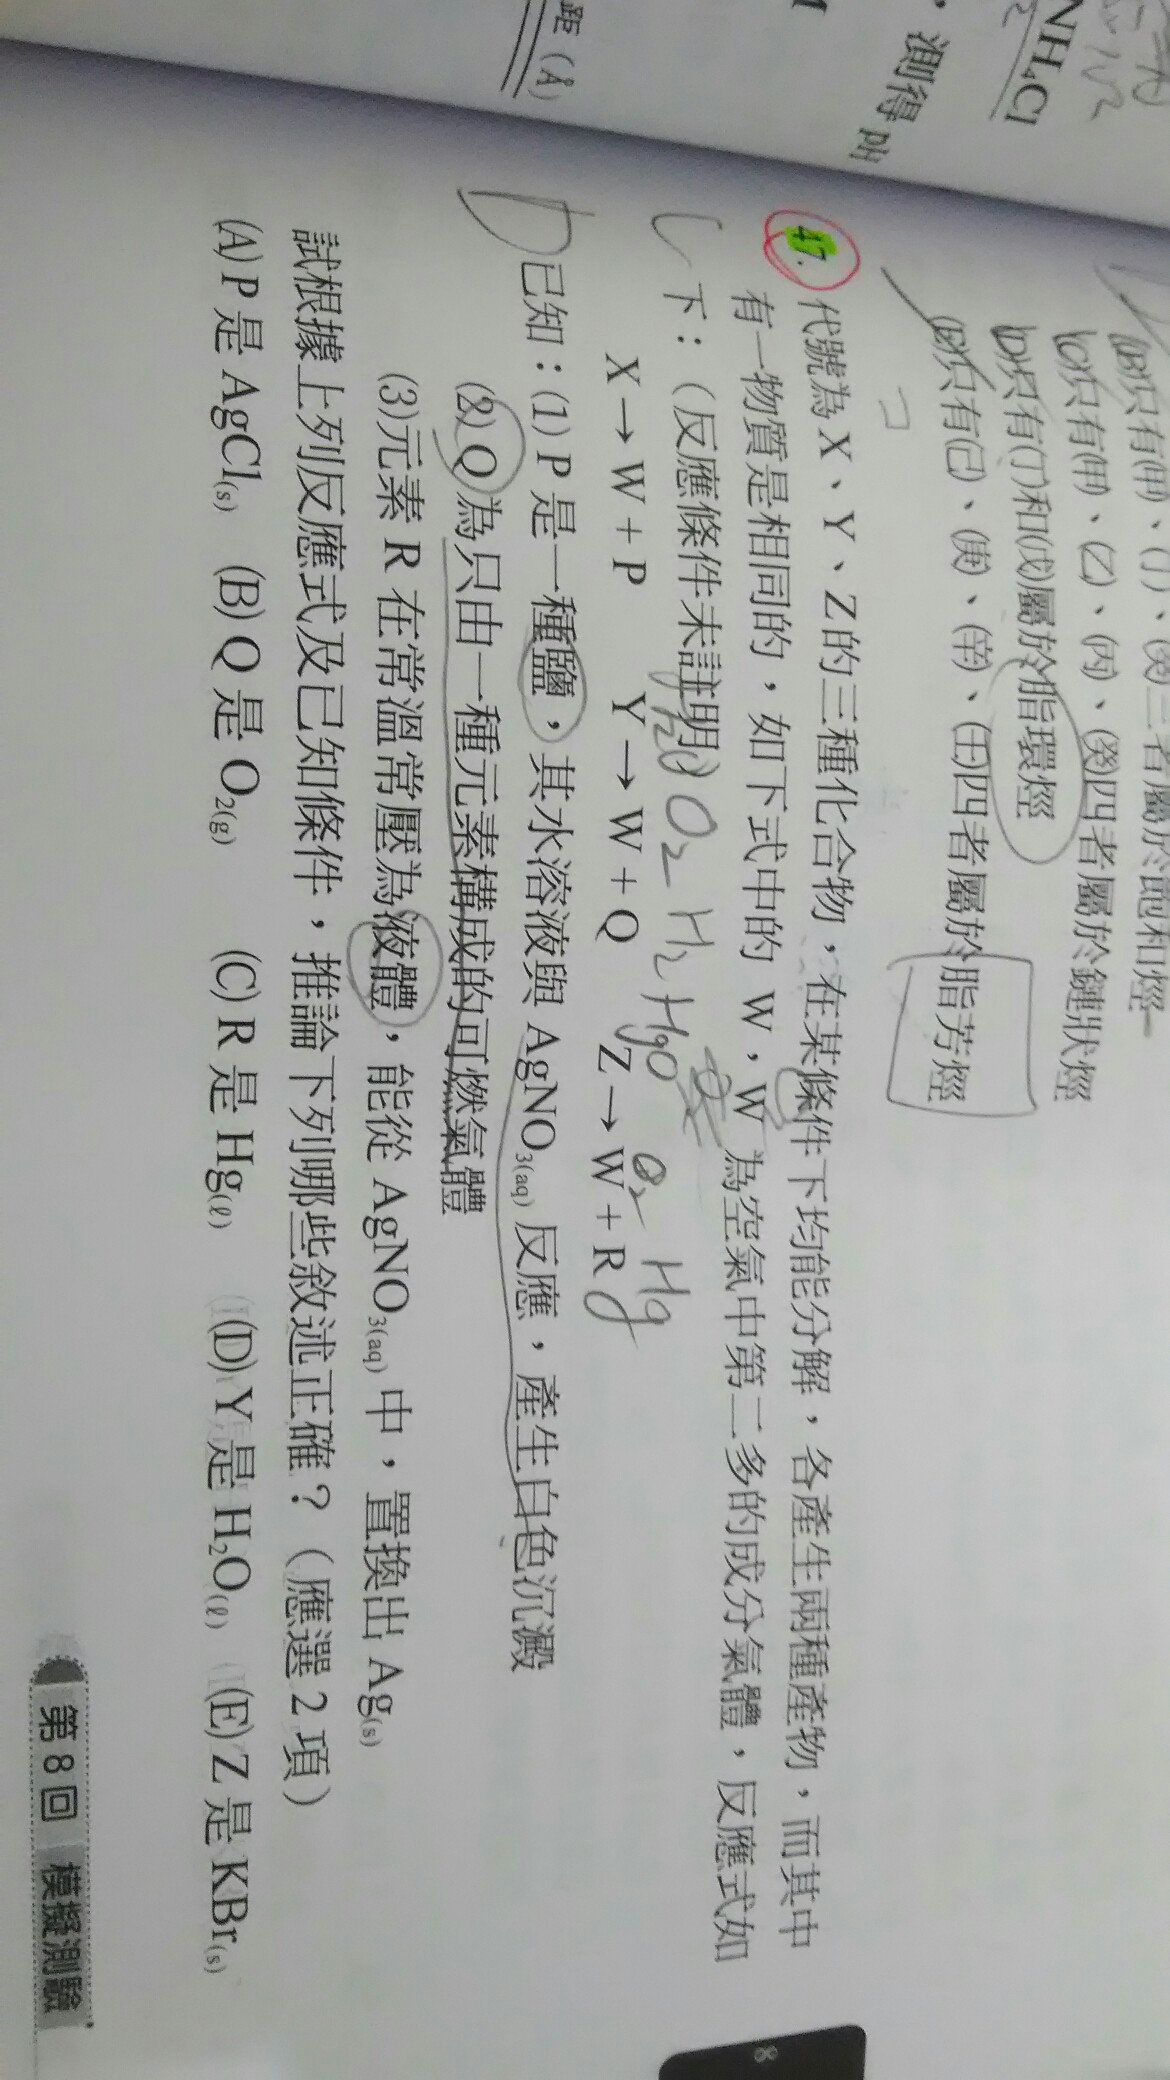 NH₄Cl
，測得 pH
距（Å）
(B)只有(甲)、(丁)、(癸)三者屬於飽和烴
(C)只有(甲)、(乙)、(丙)、(癸)四者屬於鏈狀烴
(D)只有(丁)和(戊)屬於脂環烴
(E)只有(己)、(庚)、(辛)、(壬)四者屬於脂芳烴
47. 代號為 X、Y、Z 的三種化合物，在某條件下均能分解，各產生兩種產物，而其中
有一物質是相同的，如下式中的 W，W 為空氣中第二多的成分氣體，反應式如
下：（反應條件未註明）
H₂O O₂ H₂ HgO O₂ Hg
X→W+P Y→W+Q Z→W+R
已知：(1) P 是一種鹽，其水溶液與 AgNO₃₍aq₎ 反應，產生白色沉澱
(2) Q 為只由一種元素構成的可燃氣體
(3)元素 R 在常溫常壓為液體，能從 AgNO₃₍aq₎ 中，置換出 Ag₍s₎
試根據上列反應式及已知條件，推論下列哪些敘述正確？（應選 2 項）
(A) P 是 AgCl₍s₎ (B) Q 是 O₂₍g₎ (C) R 是 Hg₍ℓ₎ (D) Y 是 H₂O₍ℓ₎ (E) Z 是 KBr₍s₎
第 8 回 模擬測驗
8